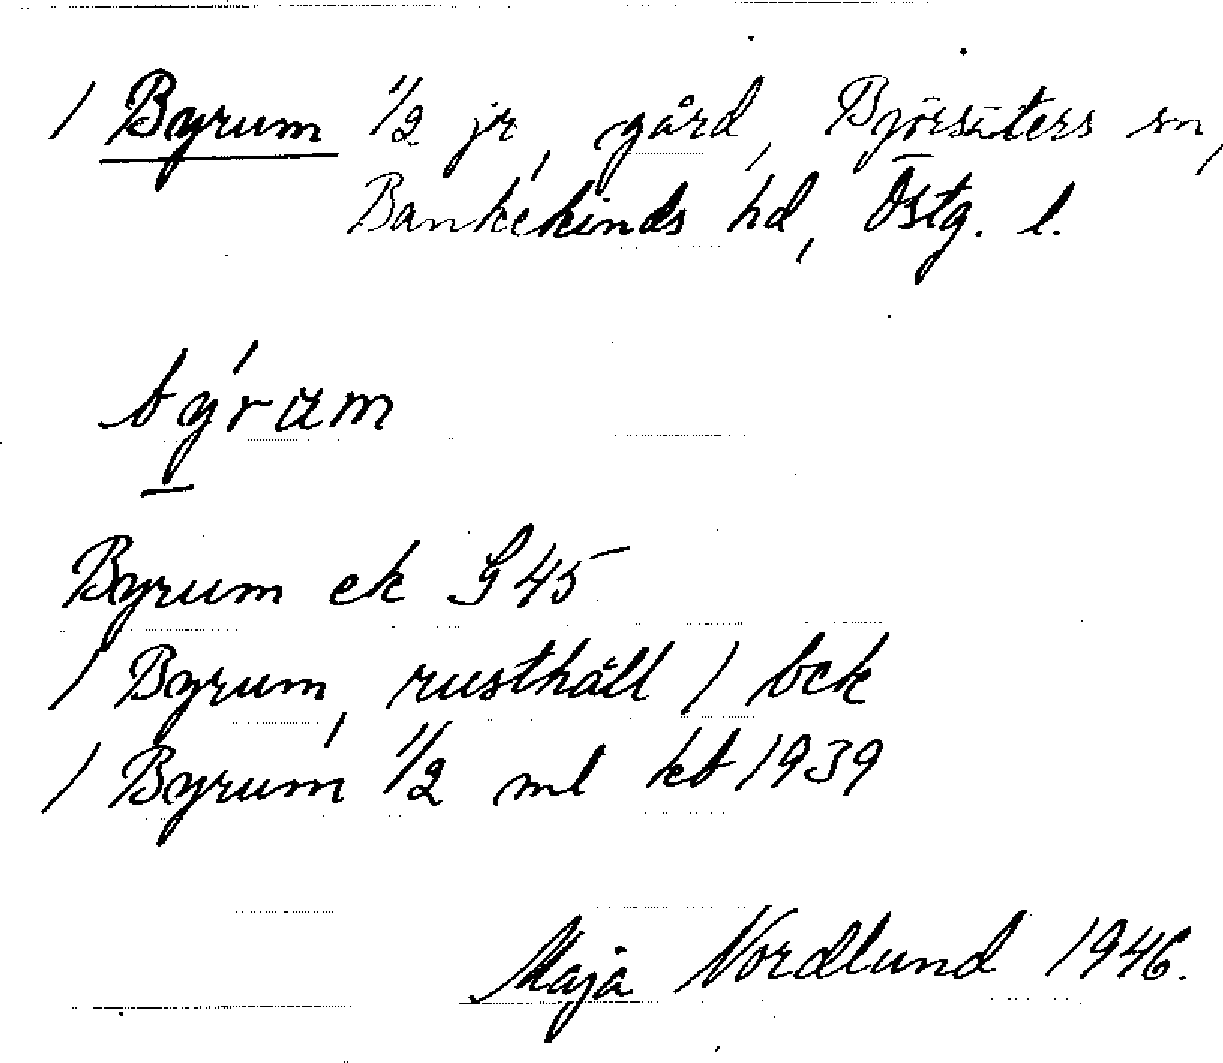 / Byrum 1/2 jr, gård, Björsäters sn,
Bankekinds hd, Östg. l.
býräm
Byrum ek G 45
/ Byrum, rusthåll / bek
/ Byrum 1/2 ml kb 1939
Maja Nordlund 1946.